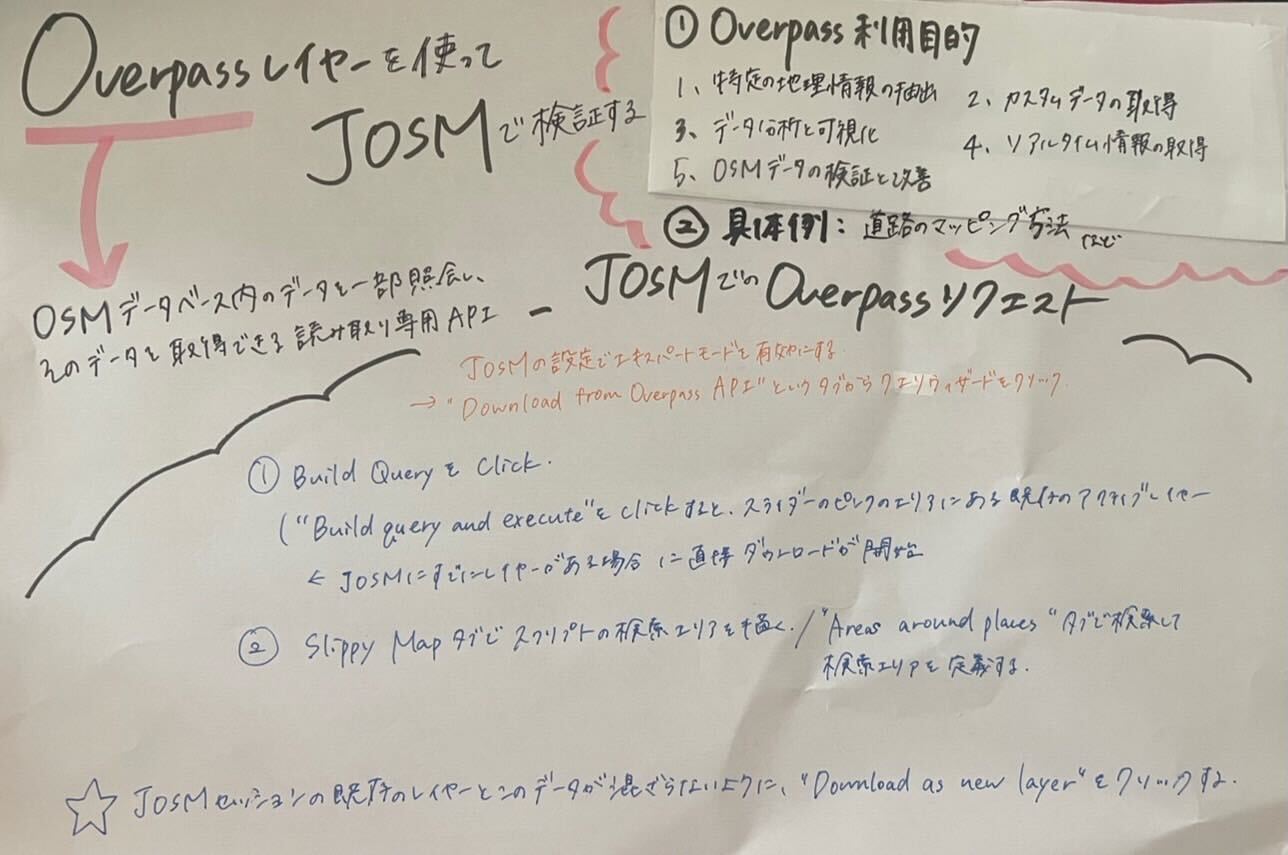 Overpassレイヤーを使って
JOSMで検証する
① Overpass 利用目的
1、特定の地理情報の抽出
2、カスタムデータの取得
3、データ分析と可視化
4、リアルタイム情報の取得
5、OSMデータの検証と改善
② 具体例：道路のマッピング方法 など
OSMデータベース内のデータを一部照会し、
そのデータを取得できる読み取り専用API
- JOSMでのOverpassリクエスト
JOSMの設定でエキスパートモードを有効にする
→"Download from Overpass API"というタブからクエリウィザードをクリック.
① Build Queryを Click.
("Build query and execute"を clickすると、スライダーのピンクのエリアにある既存のアクティブレイヤー
← JOSMにすでにレイヤーがある場合 に直接 ダウンロードが開始
② Slippy Map タブで スクリプトの検索エリアを描く./"Areas around places"タブで検索して
検索エリアを定義する.
☆ JOSMセッションの既存のレイヤーとこのデータが混ざらないように、"Download as new layer"をクリックする.